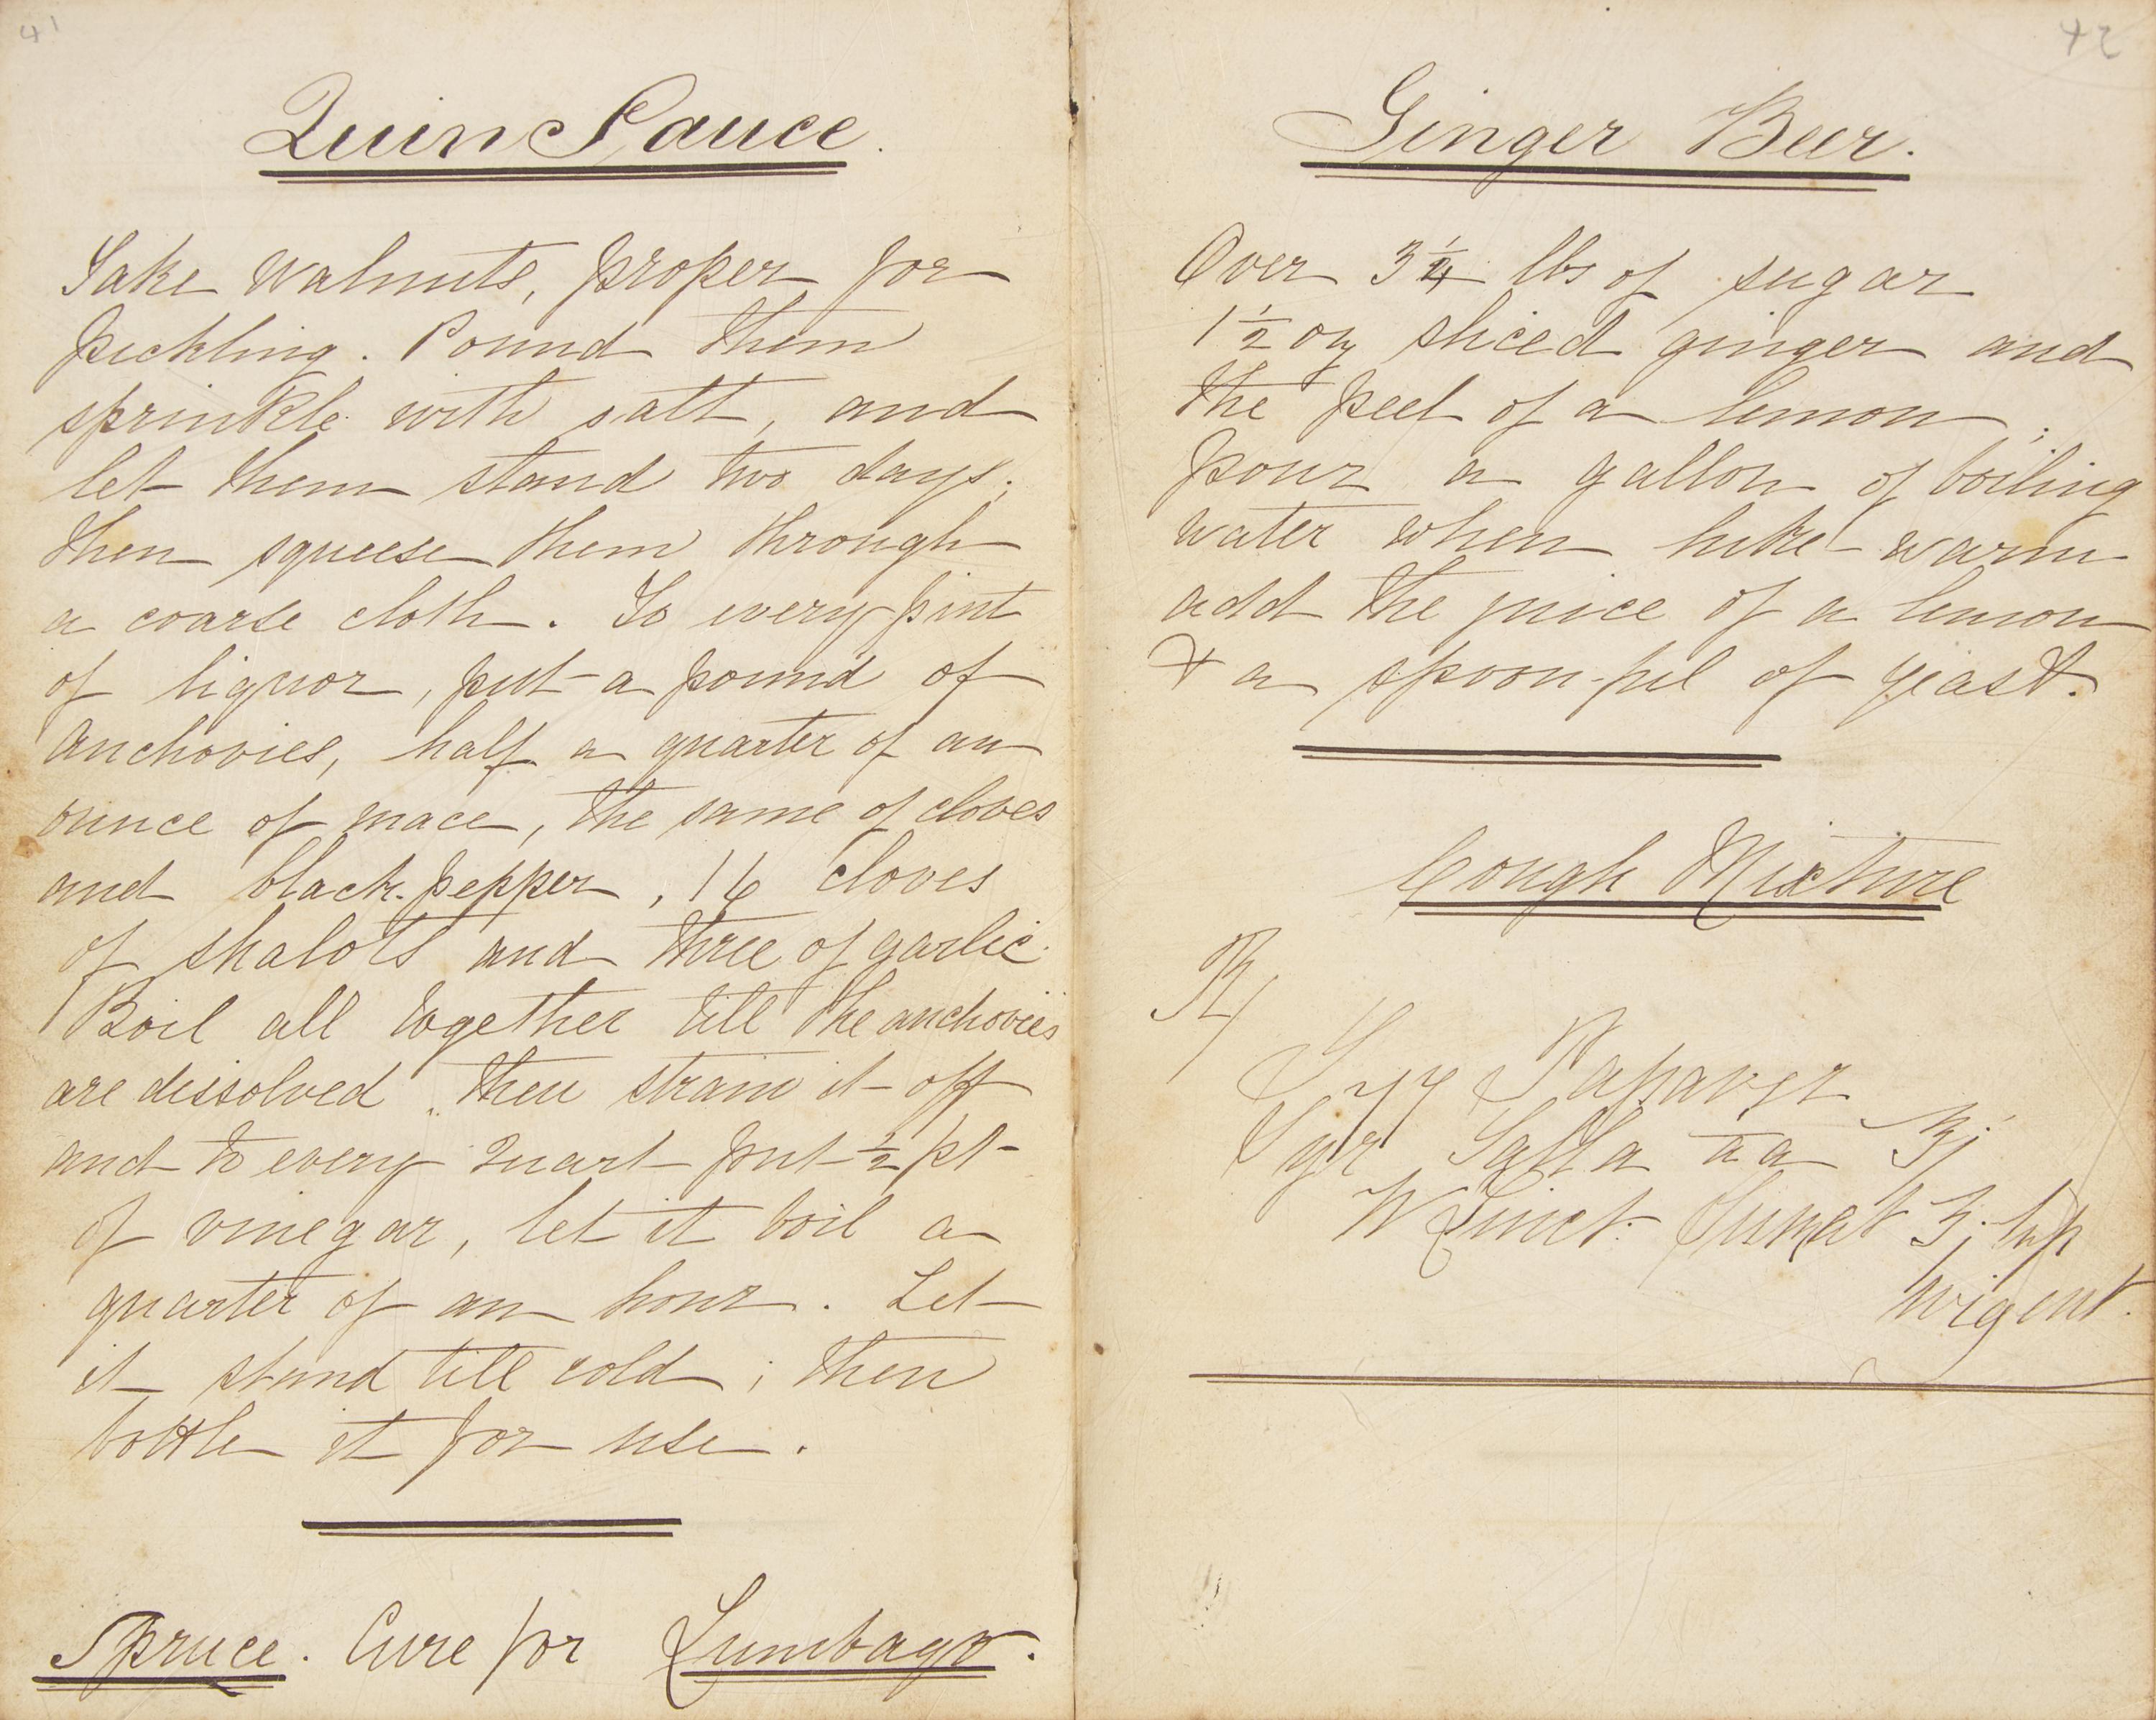 41
Quin Sauce.
Take walnuts, proper for
pickling. Pound them
sprinkle with salt, and
let them stand two days;
then squeese them through
a coarse cloth. To every pint
of liquor, put a pound of
anchovies, half a quarter of an
ounce of mace, the same of cloves
and black pepper, 16 cloves
of shalots and three of garlic.
Boil all together till the anchovies
are dissolved, then strain it off
and to every quart put ½ pt
of vinegar, let it boil a
quarter of an hour. Let
it stand till cold; then
bottle it for use.
Spruce. Cure for Lumbago.
42
Ginger Beer.
Over 3¼ lbs of sugar
1½ oz sliced ginger and
the peel of a lemon;
pour a gallon of boiling
water when luke-warm
add the juice of a lemon
& a spoon-ful of yeast.
Cough Mixture
℞
Syr Papaver
Syr aa ʒj
Tinct. ʒj
urgent.